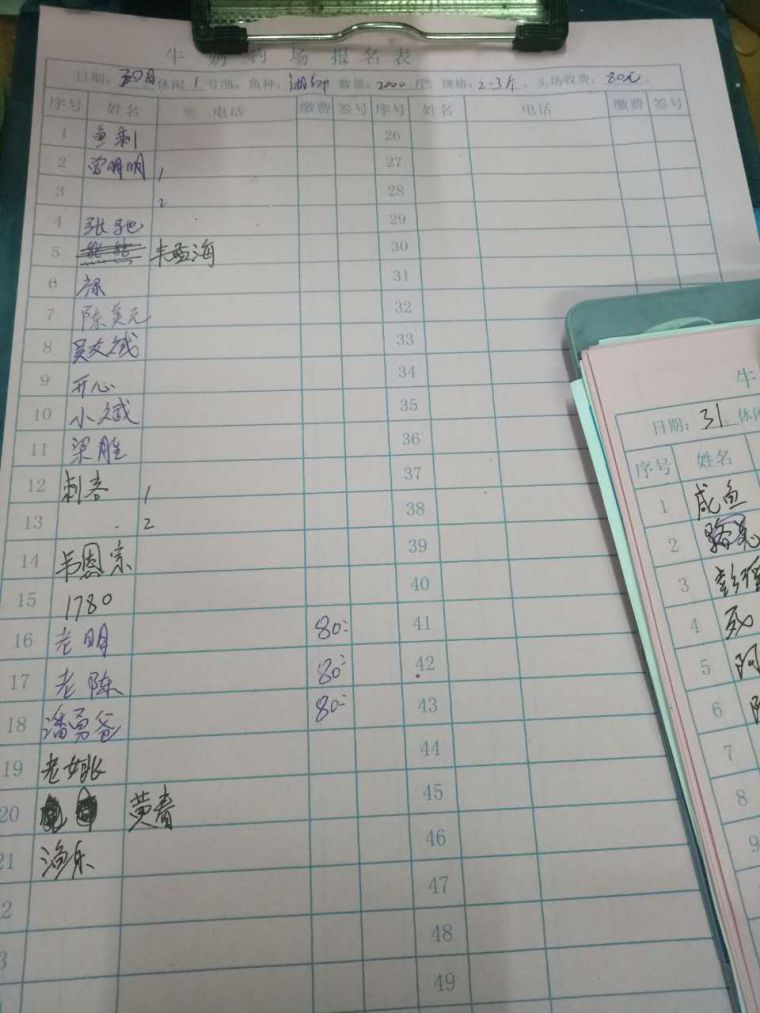 牛奶钓场报名表
日期: 30日 休闲 1 号池。鱼种: 数量: 2000 斤。规格: 2-3斤。头场收费: 80元。
序号 姓名 电话 缴费 签号 序号 姓名 电话 缴费 签号
1 鱼刺 26
2 曾明明 1 27
3 2 28
4 张弛 29
5 韦孟海 30
6 31
7 陈美元 32
8 吴文斌 33
9 开心 34
10 小斌 35
11 梁胜 36
12 刺客 1 37
13 2 38
14 韦恩宗 39
15 1780 40
16 老明 80 41
17 老陈 80 42
18 潘勇爸 80 43
19 老姚 44
20 黄青 45
21 渔乐 46
2 47
3 48
49
牛
日期: 31 休闲
序号 姓名
1 咸鱼
2
3
4
5 阿
6
7
8
9